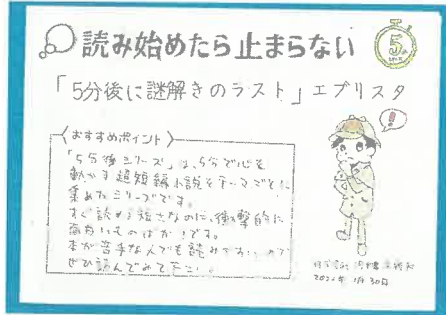 読み始めたら止まらない
5分
「5分後に謎解きのラスト」エブリスタ
!
おすすめポイント
「5分後シリーズ」は、5分で心を
動かす超短編小説をテーマごとに
集めたシリーズです。
すぐ読める短さなのに、衝撃的に
面白いものばかりです。
本が苦手な人でも読みやすいので
ぜひ読んでみて下さい。
2022年 1月30日